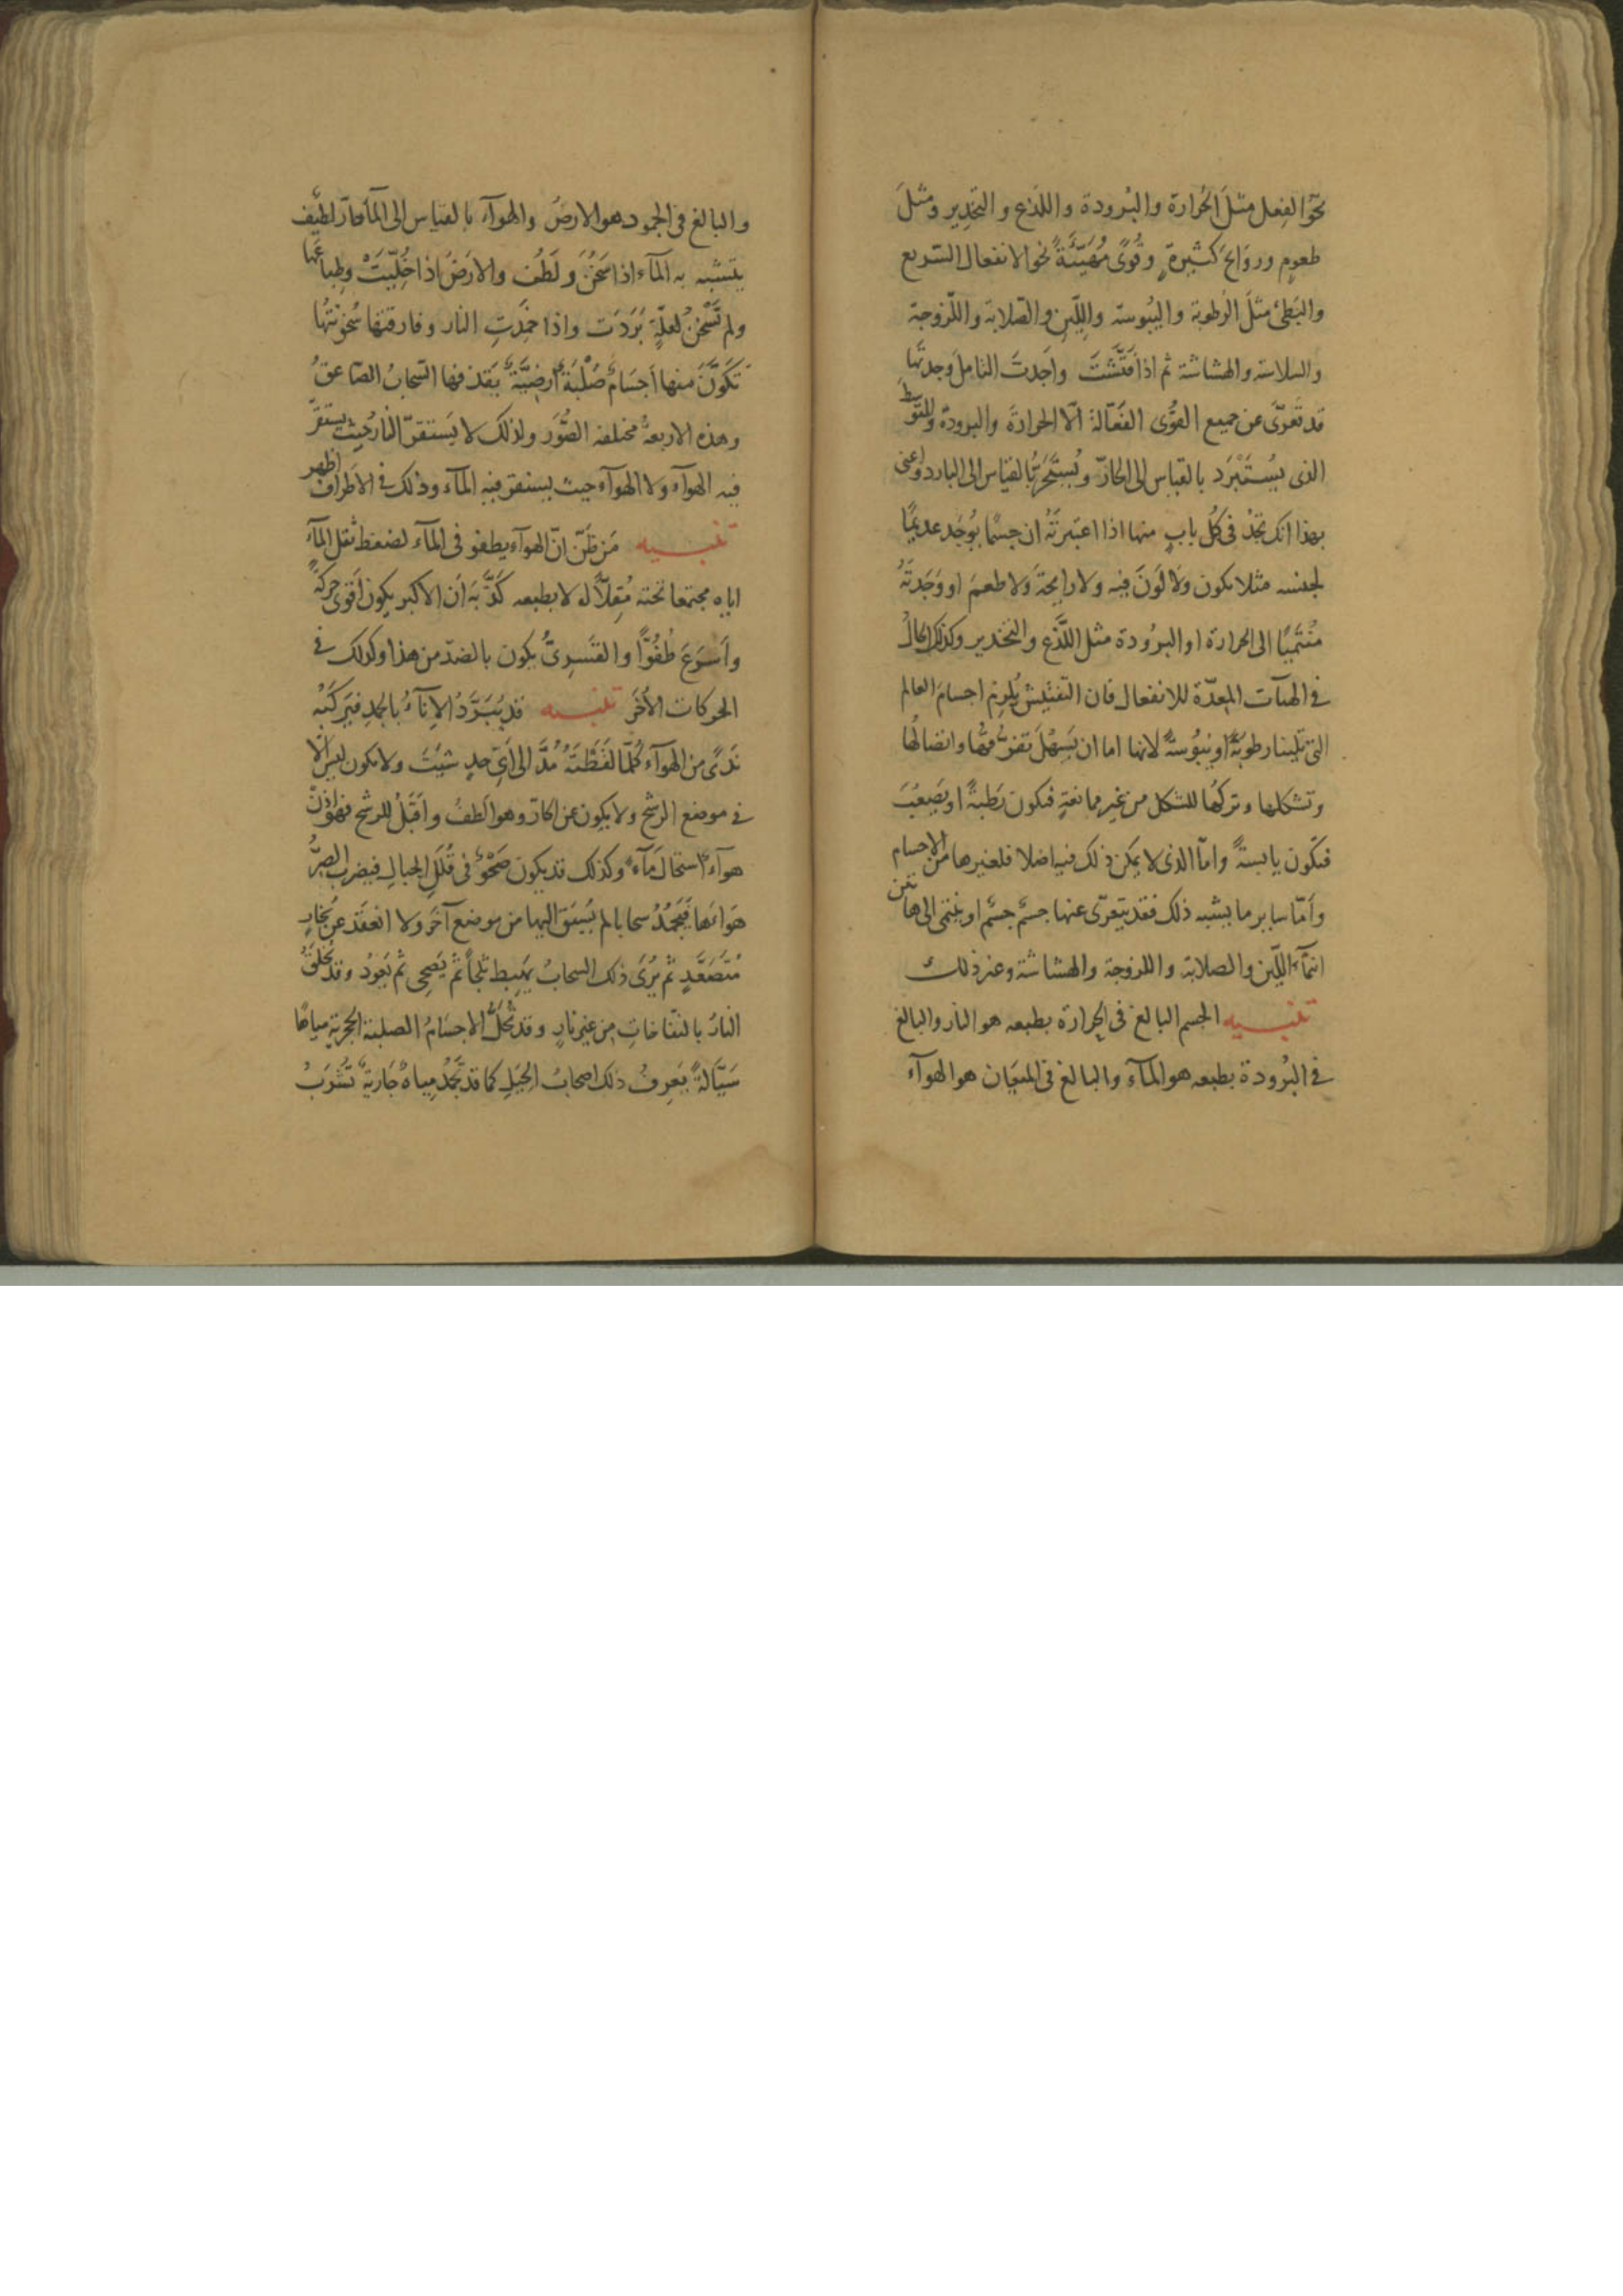 نحو الفعل مثل الحرارة والبُرودة واللذع والتخدير ومثلَ
طعومٍ وروائحَ كثيرةٍ وقُوًى مُهَيَّئَةً نحو الانفعال السّريع
والبَطئ مثلَ الرُطوبة واليبُوسة واللّين والصّلابة واللّزوجة
والسلاسة والهشاشة ثم اذا فَتَّشتَ واَجَدتَ التامل وجدتَها
قد تَعَرّى عن جميع القُوى الفَعّالة الّا الحرارةَ والبرودة والمتوسط
الذى يُستَبْرَد بالقياس الى الحارّ ويُستَحَرّ بالقياس الى البارد واعنى
بهذا انك تجدُ فى كُل بابٍ منها اذا اعتبرتَهُ ان جسمًا يُوجَد عديمًا
لجنسه مثلا يكون ولا لَونَ فيه ولا رايحةَ ولا طعمَ او وَجَدتَهُ
مُنتَميًا الى الحرارة او البرُودة مثل اللَّذع والتخدير وكذلك الحالُ
فى الهيآت المُعدّة للانفعال فان التفتيش يُلزم اجسامَ العالم
التى تلينا رطوبةً او يبُوسةً لانها اما ان يَسهُلَ تفرُّقها واتصالُها
وتشكلها وتركُها للشكل من غير ممانعةٍ فتكون رَطبةً او يَصعُبَ
فتكون يابسةً وامّا الذى لا يمكن ذلك فيه اصلا فلغيرها من الاجسام
وأمّا ساير ما يشبه ذلك فقد يتعرّى عنها جسمٌ جسمٌ او ينتمى الى هاتين
انتمآءَ اللّين والصلابة واللزوجة والهشاشة وغير ذلك
تنبيه الجسم البالغ فى الحرارة بطبعه هو النار والبالغ
فى البُرودة بطبعه هو المآء والبالغ فى الميَعان هو الهوآء
والبالغ فى الجمود هو الارضُ والهوآء بالقياس الى المآء حارّ لطيف
يتشبه به المآء اذا سَخُنَ ولَطُف والارضُ اذا خُلِّيَتْ وطباعَها
ولم تَسْخُنْ لعلّةٍ بَرَدَت واذا خَمَدَتِ النار وفارقتها سُخونتُها
تَكَوَّنَ منها اَجسَامٌ صُلْبَةٌ اَرضيَّةٌ يَقذفها السَّحابُ الصّاعقُ
وهذه الاربعة مختلفه الصُّوَر ولذلك لا يَستقرّ النارُ حيث يستقرّ
فيه الهوآء ولا الهوآء حيث يستقر فيه المآء وذلك فى الاطراف اظهر
تنبيه مَن ظَنّ انّ الهوآء يطفو فى المآء لضغط ثقل المآءِ
اياه مجتمعا تحته مُقِلّاً له لا بطبعه كَذَّبَه اَن الاكبر يكون اَقوى حركةً
واَسرَعَ طُفُوًّا والقَسرىُّ يكون بالضدّ من هذا وكذلك فى
الحركات الاُخَر تنبيه قد يُبَرَّدُ الاِنآءُ بالجمد فيَركَبُه
نَدًى من الهوآء كُلّما لَقَطتَهُ مُدَّ الى اَىّ حدٍ شئتَ ولا يكون ليس الّا
فى موضع الرشح ولا يكون عن الحارّ وهو اَلطفُ واَقبَلُ للرشح فهو اذن
هوآءٌ استحال مآءً وكذلك قد يكون صَحْوٌ فى قُلَلِ الجبالِ فيضرب الصِرُّ
هَوائها فيُجَمِّدُ سحابا لم يُسَقْ اليها من موضع آخَر ولا انعقَد عن بُخارٍ
مُتَصَعَّدٍ ثم يُرَى ذلك السحابُ يَهبِط ثلجاً ثم يَصحى ثم يَعُودُ وقد يُخلَقُ
النارُ بالنفّاخاتِ من غير نارٍ وقد تُحَلُّ الاجسَامُ الصلبة الحجرية مياهًا
سَيَّالةً يَعرِفُ ذلك اصحابُ الحِيَلِ كما قد تَجمُدُ مِياهٌ جَاريةٌ تُشْرَبُ